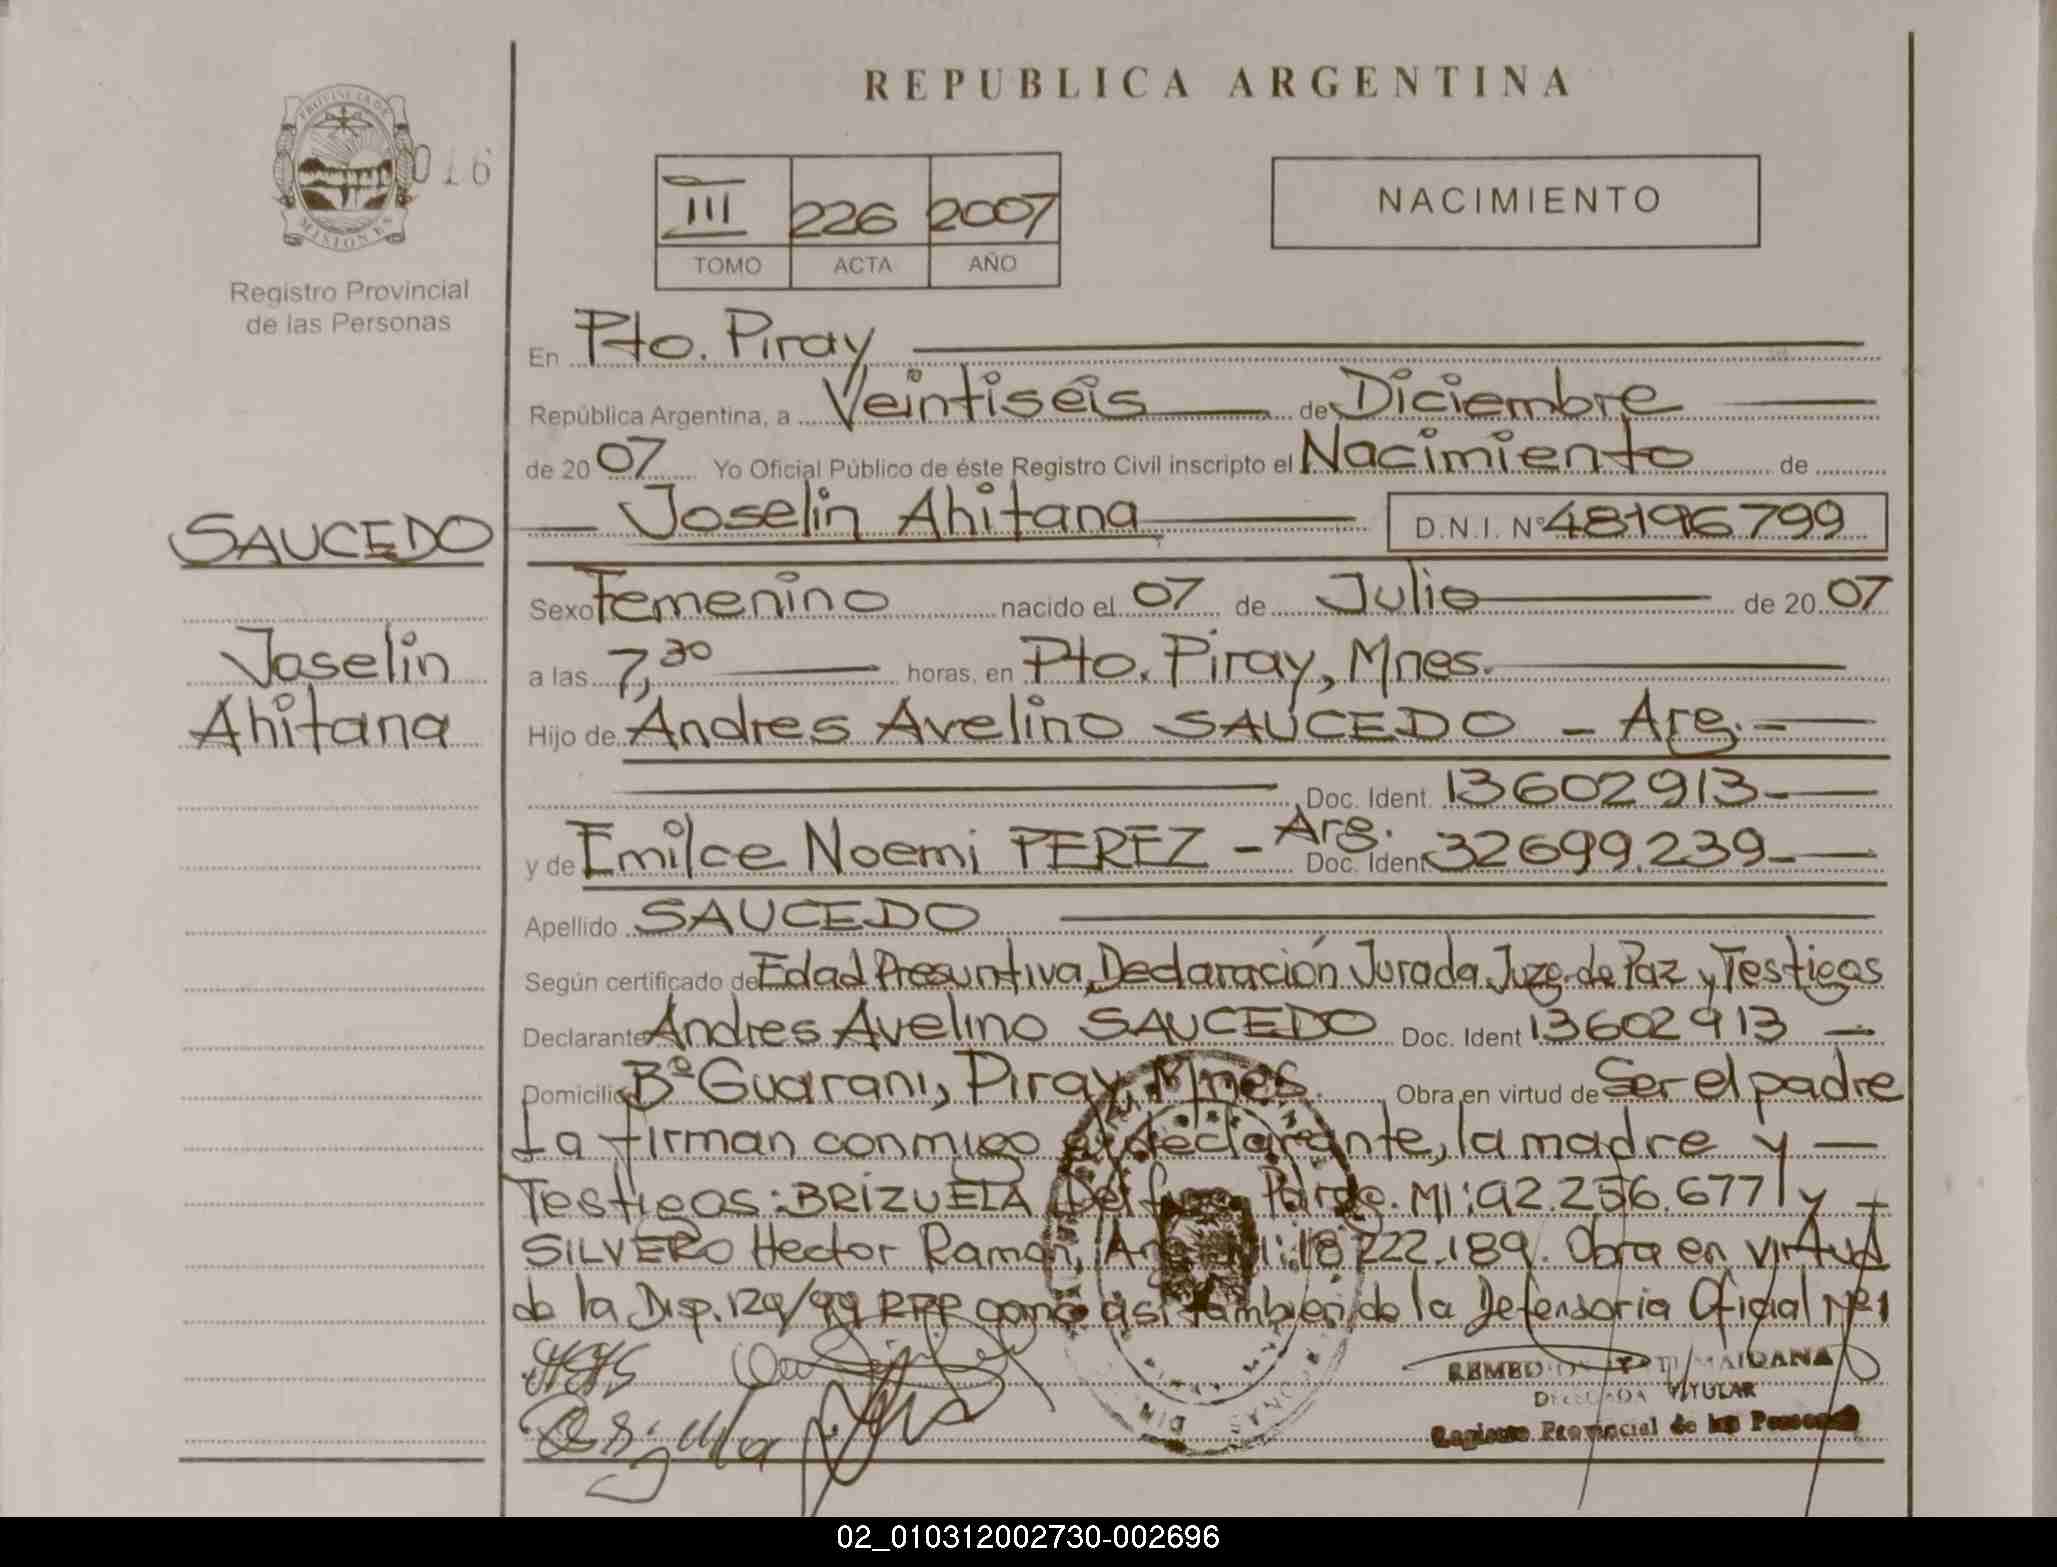 REPUBLICA ARGENTINA
PROVINCIA DE
MISIONES
016
Registro Provincial
de las Personas
III 226 2007
TOMO ACTA AÑO
NACIMIENTO
En Pto. Piray
República Argentina, a Veintiséis de Diciembre
de 20 07 Yo Oficial Público de éste Registro Civil inscripto el Nacimiento de
Joselin Ahitana D.N.I. Nº 48196799
SAUCEDO
Joselin
Ahitana
Sexo Femenino nacido el 07 de Julio de 20 07
a las 7,30 horas, en Pto. Piray, Mnes.
Hijo de Andres Avelino SAUCEDO - Arg. -
Doc. Ident. 13602913-
y de Emilce Noemi PEREZ - Arg. Doc. Ident 32699.239-
Apellido SAUCEDO
Según certificado de Edad Presuntiva, Declaración Jurada Juzg. de Paz y Testigos
Declarante Andres Avelino SAUCEDO Doc. Ident 13602913
Domicilio Bº Guarani, Piray, Mnes. Obra en virtud de Ser el padre
La firman conmigo el declarante, la madre y
Testigos: BRIZUELA MI: 92.256.677 y
SILVERO Hector Ramon, 18.222.189. Obra en virtud
de la Disp. 129/99 RPP como asi tambien de la Defensoria Oficial Nº1
MAIDANA
TITULAR
Registro Provincial de las Personas
02_010312002730-002696